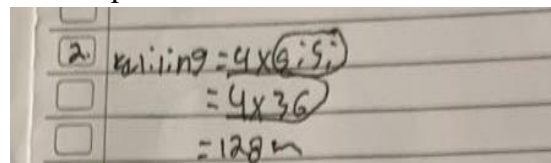 2. keliling = 4 x (sisi)
= 4 x 36
= 128 m